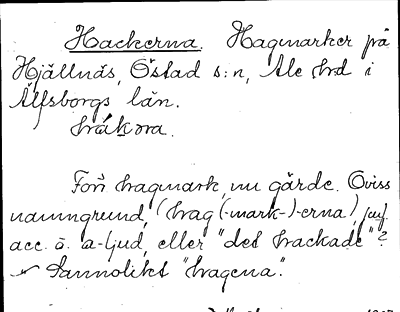 Hackerna. Hagmarker på
Hjällnäs, Östad s:n, Ale hrd i
Älfsborgs län.
hákora.
Förr hagmark, nu gärde. Oviss
namngrund, (hag(-mark-)-erna), jmf
acc. o. a-ljud, eller "det hackade"?
Sannolikt "hagena".